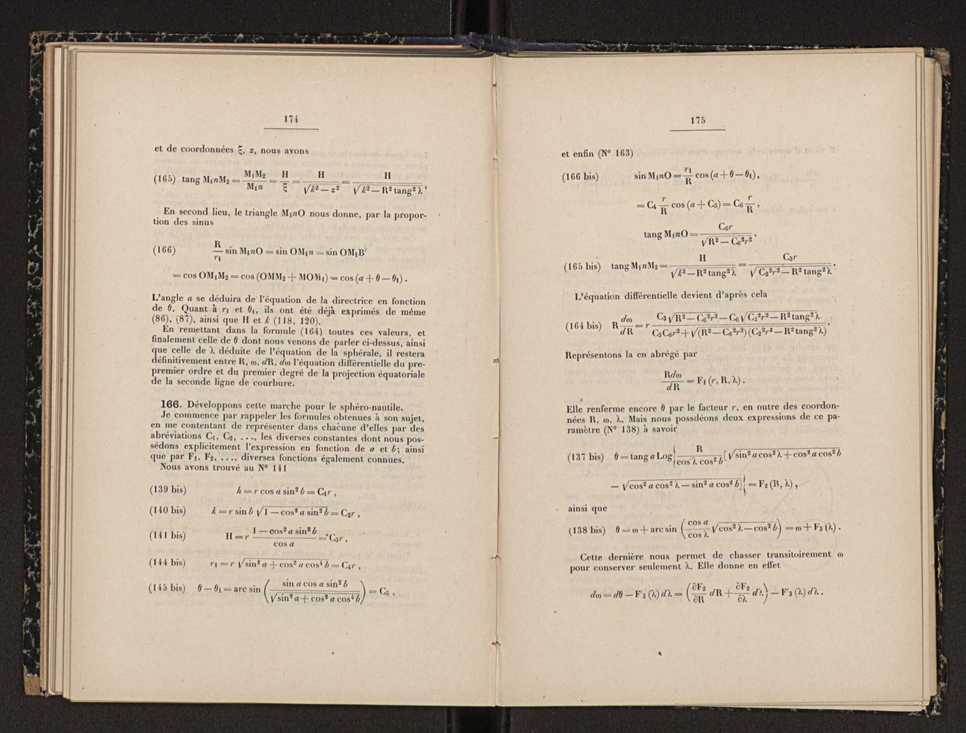 174
et de coordonnées ξ, z, nous avons
(165) tang M₁nM₂ = M₁M₂/M₁n = H/ξ = H/√(k² − z²) = H/√(k² − R² tang² λ),
En second lieu, le triangle M₁nO nous donne, par la propor-
tion des sinus
(166) R/r₁ sin M₁nO = sin OM₁n = sin OM₁B'
= cos OM₁M₂ = cos (OMM₂ + MOM₁) = cos (a + θ — θ₁).
L'angle a se déduira de l'équation de la directrice en fonction
de θ. Quant à r₁ et θ₁, ils ont été déjà exprimés de même
(86), (87), ainsi que H et k (118, 120).
En remettant dans la formule (164) toutes ces valeurs, et
finalement celle de θ dont nous venons de parler ci-dessus, ainsi
que celle de λ déduite de l'équation de la sphérale, il restera
définitivement entre R, ω, dR, dω l'équation différentielle du pre-
premier ordre et du premier degré de la projection équatoriale
de la seconde ligne de courbure.
166. Développons cette marche pour le sphéro-nautile.
Je commence par rappeler les formules obtenues à son sujet,
en me contentant de représenter dans chacune d'elles par des
abréviations C₁, C₂, ..., les diverses constantes dont nous pos-
sédons explicitement l'expression en fonction de a et b; ainsi
que par F₁, F₂, ..., diverses fonctions également connues.
Nous avons trouvé au N° 141
(139 bis) h = r cos a sin² b = C₁r,
(140 bis) k = r sin b √(1 — cos² a sin² b) = C₂r,
(141 bis) H = r (1 — cos² a sin² b)/cos a = C₃r,
(144 bis) r₁ = r √(sin² a + cos² a cos⁴ b) = C₄r,
(145 bis) θ — θ₁ = arc sin (sin a cos a sin² b/√(sin² a + cos² a cos⁴ b)) = C₅,
175
et enfin (N° 163)
(166 bis) sin M₁nO = r₁/R cos (a + θ — θ₁),
= C₄ r/R cos (a + C₅) = C₆ r/R,
tang M₁nO = C₆r/√(R² — C₆²r²),
(165 bis) tang M₁nM₂ = H/√(k² — R² tang² λ) = C₃r/√(C₂²r² — R² tang² λ).
L'équation différentielle devient d'après cela
(164 bis) R dω/dR = r (C₃√(R² — C₆²r²) — C₆√(C₂²r² — R² tang² λ))/(C₃C₆r² + √((R² — C₆²r²)(C₂²r² — R² tang² λ))).
Représentons la en abrégé par
Rdω/dR = F₁ (r, R, λ).
Elle renferme encore θ par le facteur r, en outre des coordon-
nées R, ω, λ. Mais nous possédons deux expressions de ce pa-
ramètre (N° 138) à savoir
(137 bis) θ = tang a Log {R/(cos λ cos² b) [√(sin² a cos² λ + cos² a cos² b)
— √(cos² a cos² λ — sin² a cos² b)]} = F₂ (R, λ),
ainsi que
(138 bis) θ = ω + arc sin (cos a/cos λ √(cos² λ — cos² b)) = ω + F₃ (λ).
Cette dernière nous permet de chasser transitoirement ω
pour conserver seulement λ. Elle donne en effet
dω = dθ — F'₃ (λ) dλ = (∂F₂/∂R dR + ∂F₂/∂λ dλ) — F'₃ (λ) dλ.